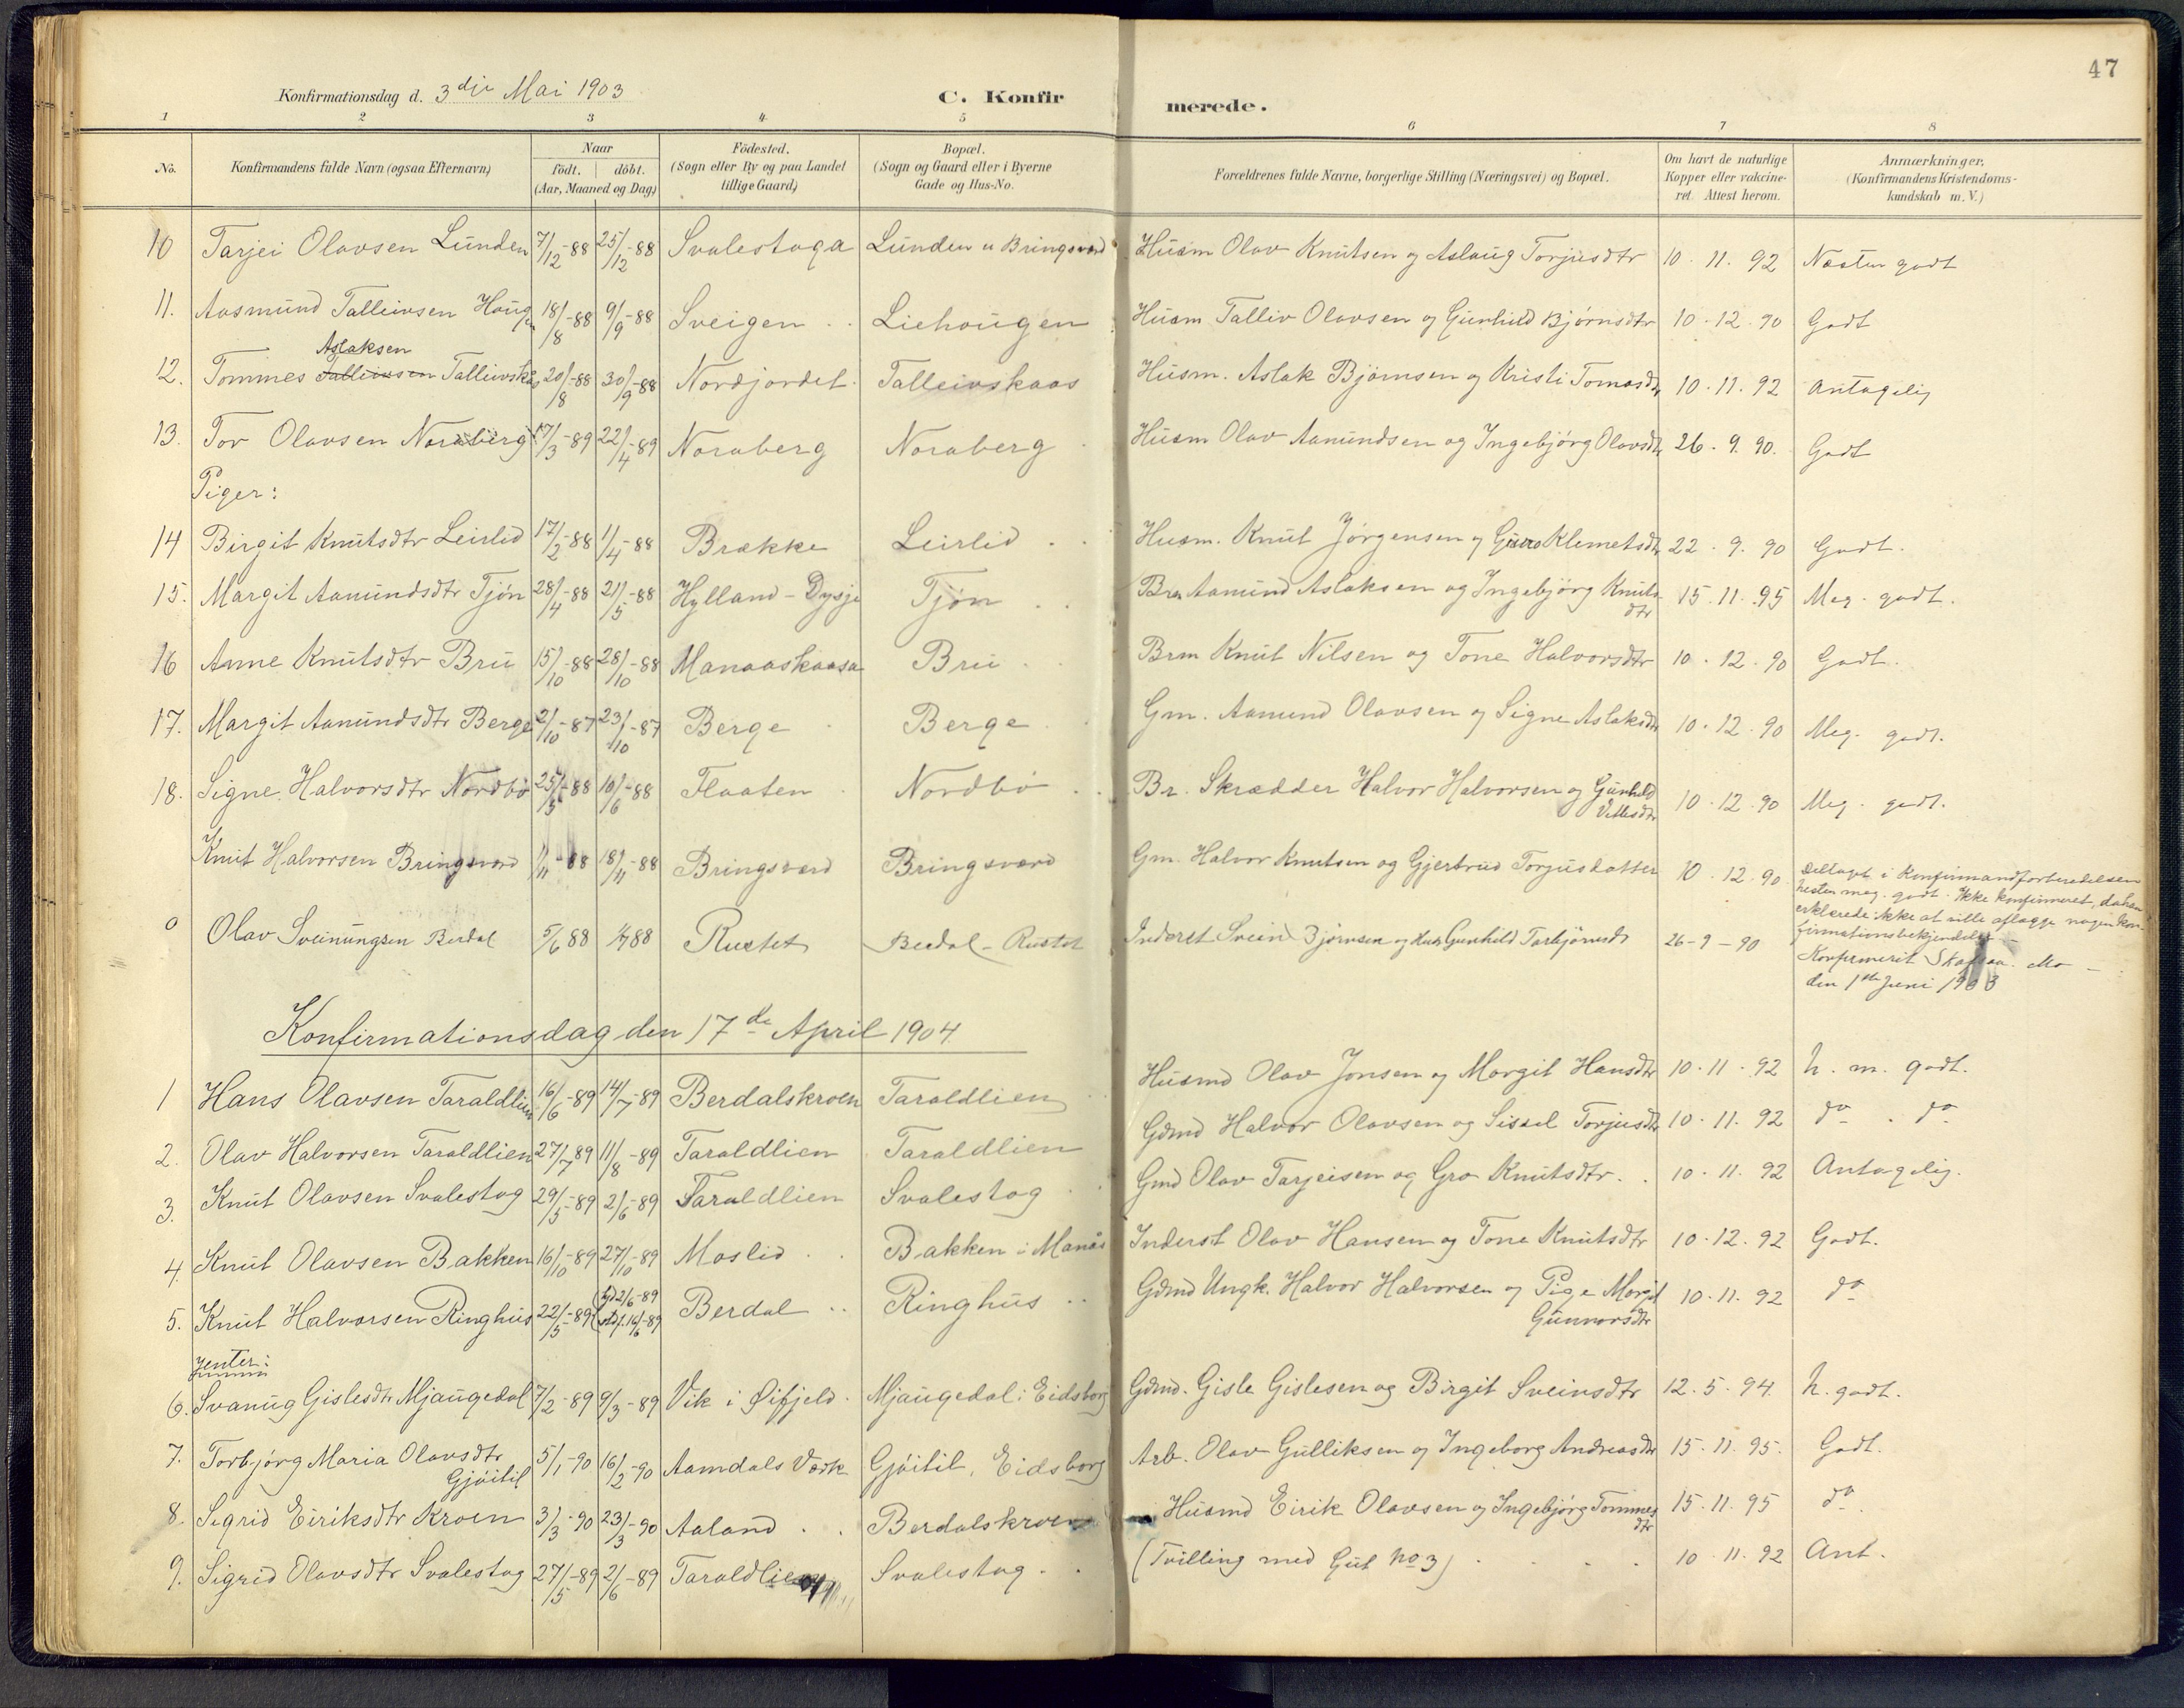 47
Konfirmationsdag d. 3die Mai 1903
C. Konfir merede.
1 2 3 4 5 6 7 8
No. Konfirmandens fulde Navn (ogsaa Efternavn) Naar födt. döbt. (Aar, Maaned og Dag) Födested. (Sogn eller By og paa Landet tillige Gaard) Bopæl. (Sogn og Gaard eller i Byerne Gade og Hus-No. Forældrenes fulde Navne, borgerlige Stilling (Næringsvei) og Bopæl. Om havt de naturlige Kopper eller vakcineret. Attest herom. Anmærkninger, (Konfirmandens Kristendomskundskab m. V.)
10 Tarjei Olavsen Lunden 7/12-88 25/12-88 Svalestoga Lunden u Bringsværd Husm Olav Knutsen og Aslaug Torjusdtr 10. 11. 92 Næsten godt
11. Aasmund Talleivsen Haugen 18/8-88 9/9-88 Sveigen Liehaugen Husm Talliv Olavsen og Gunhild Bjørnsdtr 10.12.90 Godt
Aslaksen
12. Tommes Talleivsen Talleivskaas 20/8-88 30/9-88 Nordjordet Talleivskaas Husm. Aslak Bjørnsen og Kristi Tomasdtr 10.11.92 Antagelig
13. Tov Olavsen Noraberg 17/3-89 22/4-89 Noraberg Noraberg Husm Olav Aanundsen og Ingebjørg Olavsdtr 26.9.90. Godt
Piger:
14 Birgit Knutsdtr Leirlid 17/2-88 1/4-88 Brække Leirlid Husm. Knut Jørgensen og Guro Klemetsdtr 22.9.90 Godt.
15. Margit Aanundsdtr Tjøn 28/4-88 21/5-88 Hylland-Dysje Tjøn Aanund Aslaksen og Ingebjørg Knutsdtr 15.11.95 Meg. godt.
16 Anne Knutsdtr Bru 15/10-88 28/10-88 Manaaskaasa Bru Brm Knut Nilsen og Tone Halvorsdtr 10.12.90 Godt.
17. Margit Aanundsdtr Berge 2/10-87 23/10-87 Berge Berge Gm. Aanund Olavsen og Signe Aslaksdtr 10.12.90 Meg. godt.
18. Signe Halvorsdtr Nordbø 25/5-88 10/6-88 Flaaten Nordbø Br. Skrædder Halvor Halvorsen og Gunhild Vetlesdtr 10.12.90 Meg. godt.
Knut Halvorsen Bringsværd 1/11-88 18/11-88 Bringsværd Bringsværd Gm. Halvor Knutsen og Gjertrud Torjusdatter 10.12.90 Deltaget i Konfirmandforberedelsen
meg. godt. Ikke konfirmeret, da han
erklærede ikke at ville aflægge nogen kon-
firmationsbekjendelse
0 Olav Sveinungsen Berdal 5/6 88 1/7 88 Rustet Berdal-Rustet Inderst Svein Bjørnsen og Gunhild Torbjørnsdt 26-9-90 Konfirmerit Skafsaa. Mo
den 1ste Juni 1903
Konfirmationsdag den 17de April 1904
1 Hans Olavsen Taraldlien 16/6-89 14/7-89 Berdalskroen Taraldlien Husmd Olav Jonsen og Margit Hansdtr 10.11.92 h. m. godt.
2. Olav Halvorsen Taraldlien 27/7 89 11/8-89 Taraldlien Taraldlien Gdmd Halvor Olavsen og Sissel Torjusdtr 10.11.92 do. do
3. Knut Olavsen Svalestog 29/5-89 2/6-89 Taraldlien Svalestog Gmd Olav Tarjeisen og Gro Knutsdtr. 10.11.92 Antagelig.
4. Knut Olavsen Bakken 16/10-89 27/10-89 Moslid Bakken i Manås Inderst Olav Hansen og Tone Knutsdtr 10.12.92 Godt.
5. Knut Halvorsen Ringhus 22/5-89 (hjd 2/6-89 stdf. 16/6-89 Berdal Ringhus Gdmd Ungk. Halvor Halvorsen og Pige Margit Gunnarsdtr 10.11.92 do
Jenter:
6. Svanug Gislesdtr Mjaugedal 7/2-89 9/3-89 Vik i Øifjeld Mjaugedal i Eidsborg Gdmd. Gisle Gislesen og Birgit Sveinsdtr 12.5.94. h. godt.
7. Torbjørg Maria Olavsdtr Gjøitil 5/1-90 16/2-90 Aamdals Værk Gjøitil, Eidsborg Arb. Olav Gulliksen og Ingeborg Andreasdtr 15.11.95. Godt.
8. Sigrid Eiriksdtr Kroen 3/3-90 23/3-90 Aaland Berdalskroen Husmd Eirik Olavsen og Ingebjørg Tommesdtr 15.11.95 do
9. Sigrid Olavsdtr Svalestog 27/5-89 2/6-89 Taraldlien Svalestog. (Tvilling med Gut no 3) 10.11.92 Ant.